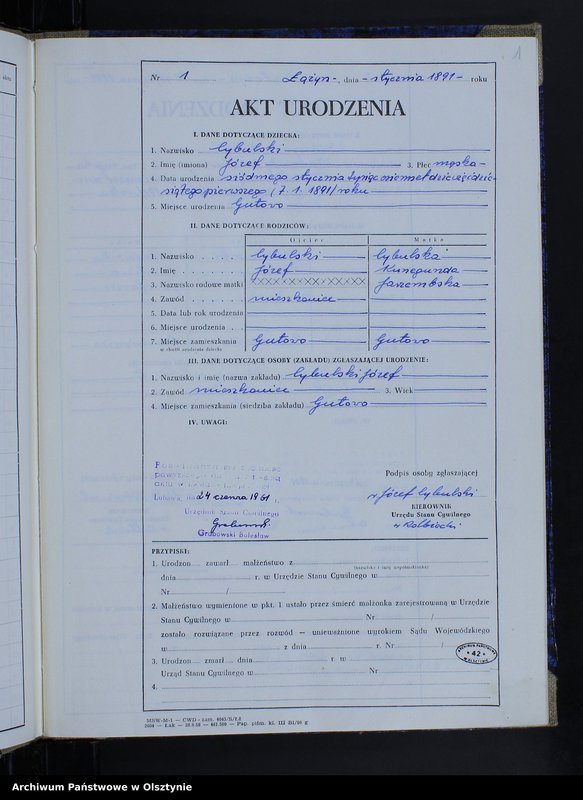 1
Nr 1 Łążyn-, dnia - stycznia 1891 - roku
AKT URODZENIA
I. DANE DOTYCZĄCE DZIECKA:
1. Nazwisko Cybulski
2. Imię (imiona) Józef 3. Płeć męska
4. Data urodzenia siódmego stycznia tysiąc osiemset dziewięćdzie-
siątego pierwszego (7.1.1891) roku
5. Miejsce urodzenia Gutowo
II. DANE DOTYCZĄCE RODZICÓW:
Ojciec Matka
1. Nazwisko Cybulski Cybulska
2. Imię Józef Kunegunda
3. Nazwisko rodowe matki Jarzembska
4. Zawód mieszkaniec
5. Data lub rok urodzenia
6. Miejsce urodzenia
7. Miejsce zamieszkania Gutowo Gutowo
w chwili urodzenia dziecka
III. DANE DOTYCZĄCE OSOBY (ZAKŁADU) ZGŁASZAJĄCEJ URODZENIE:
1. Nazwisko i imię (nazwa zakładu) Cybulski Józef
2. Zawód mieszkaniec 3. Wiek
4. Miejsce zamieszkania (siedziba zakładu) Gutowo
IV. UWAGI:
dnia 24 czerwca 1961 r.
Urzędnik Stanu Cywilnego
Grabowski
Grabowski Bolesław
Podpis osoby zgłaszającej
Józef Cybulski
KIEROWNIK
Urzędu Stanu Cywilnego
PRZYPISKI:
1. Urodzon zawarł małżeństwo z
(nazwisko i imię współmałżonka)
dnia r. w Urzędzie Stanu Cywilnego w
Nr /
2. Małżeństwo wymienione w pkt. 1 ustało przez śmierć małżonka zarejestrowaną w Urzędzie
Stanu Cywilnego w Nr /
zostało rozwiązane przez rozwód — unieważnione wyrokiem Sądu Wojewódzkiego
w z dnia r. Nr /
3. Urodzon zmarł dnia r w
Urząd Stanu Cywilnego w Nr
4.
ARCHIWUM PAŃSTWOWE
* 42 *
W OLSZTYNIE
Archiwum Państwowe w Olsztynie